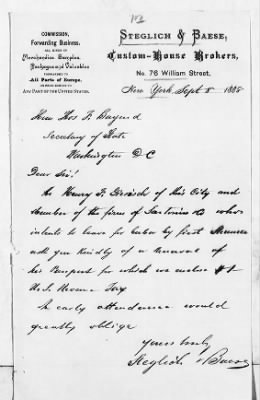 COMMISSION,
Forwarding Business.
ALL KINDS OF
Merchandise Samples,
Packages and Valuables
FORWARDED TO
All Parts of Europe,
OR FROM EUROPE TO
ANY PART OF THE UNITED STATES.
STEGLICH & BAESE,
Custom-House Brokers,
No. 76 William Street,
New York, Sept 8 1885
Hon Thos F. Bayard
Secretary of State
Washington D C
Dear Sir!
Mr Henry F. of this City and
Member of the firm of & Co who
intends to leave for by first Steamer
ask you kindly of a renewal of
his Passport for which we enclose
U.S. Revenue Tax
An early attendance would
greatly oblige
Yours truly
Steglich & Baese